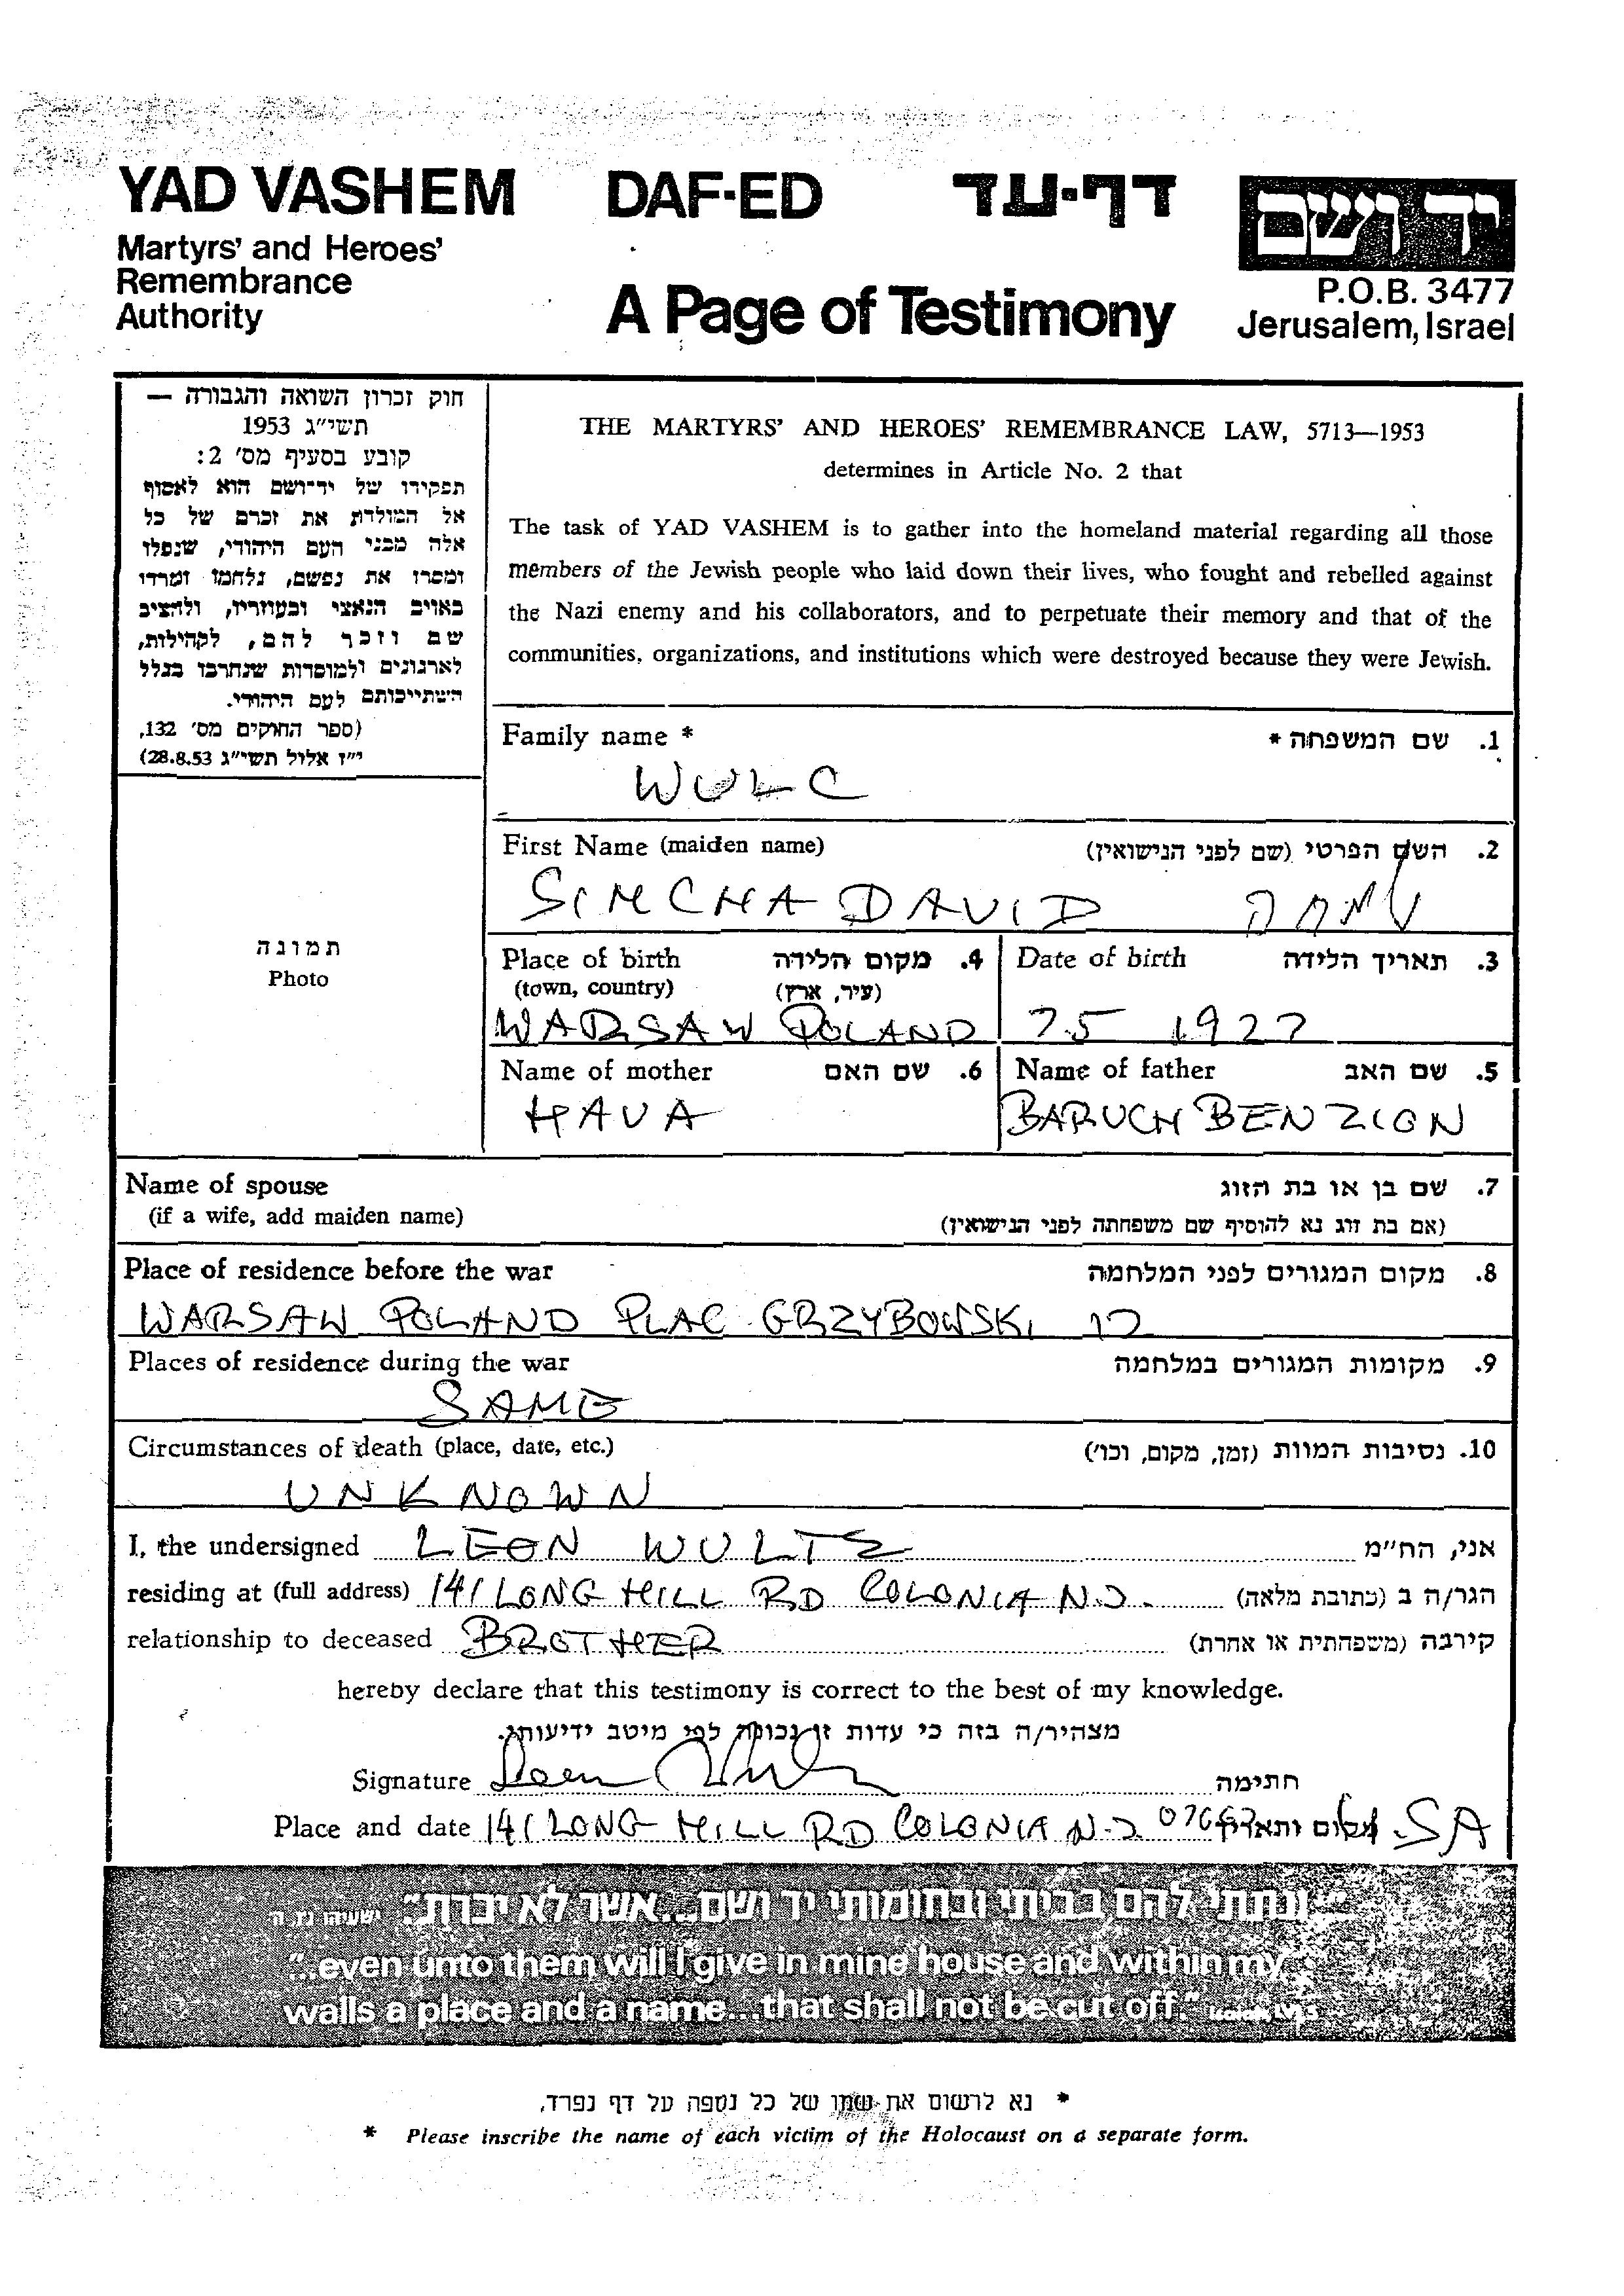 YAD VASHEM DAF-ED דף-עד יד ושם
Martyrs' and Heroes'
Remembrance
Authority
A Page of Testimony
P.O.B. 3477
Jerusalem, Israel
חוק זכרון השואה והגבורה —
תשי״ג 1953
קובע בסעיף מס׳ 2:
תפקידו של יד-ושם הוא לאסוף
אל המולדת את זכרם של כל
אלה מבני העם היהודי, שנפלו
ומסרו את נפשם, נלחמו ומרדו
באויב הנאצי ובעוזריו, ולהציב
שם וזכר להם, לקהילות,
לארגונים ולמוסדות שנחרבו בגלל
השתייכותם לעם היהודי.
(ספר החוקים מס׳ 132,
י״ז אלול תשי״ג 28.8.53)
תמונה
Photo
THE MARTYRS' AND HEROES' REMEMBRANCE LAW, 5713—1953
determines in Article No. 2 that
The task of YAD VASHEM is to gather into the homeland material regarding all those
members of the Jewish people who laid down their lives, who fought and rebelled against
the Nazi enemy and his collaborators, and to perpetuate their memory and that of the
communities, organizations, and institutions which were destroyed because they were Jewish.
Family name * 1. שם המשפחה *
WULC
First Name (maiden name) 2. השם הפרטי (שם לפני הנישואין)
SIMCHA DAVID שמחה
Place of birth 4. מקום הלידה Date of birth 3. תאריך הלידה
(town, country) (עיר, ארץ)
WARSAW POLAND 25 1927
Name of mother 6. שם האם Name of father 5. שם האב
HAVA BARUCH BENZION
Name of spouse 7. שם בן או בת הזוג
(if a wife, add maiden name) (אם בת זוג נא להוסיף שם משפחתה לפני הנישואין)
Place of residence before the war 8. מקום המגורים לפני המלחמה
WARSAW POLAND PLAC GRZYBOWSKI 12
Places of residence during the war 9. מקומות המגורים במלחמה
SAME
Circumstances of death (place, date, etc.) 10. נסיבות המוות (זמן, מקום, וכו׳)
UNKNOWN
I, the undersigned LEON WULTZ אני, הח״מ
residing at (full address) 141 LONG HILL RD COLONIA N.J. הגר/ה ב (כתובת מלאה)
relationship to deceased BROTHER קירבה (משפחתית או אחרת)
hereby declare that this testimony is correct to the best of my knowledge.
מצהיר/ה בזה כי עדות זו נכונה לפי מיטב ידיעותי.
Signature Leon חתימה
Place and date 141 LONG HILL RD COLONIA N.J. מקום ותאריך
״...ונתתי להם בביתי ובחומותי יד ושם...אשר לא יכרת״ ישעיהו נו, ה
"...even unto them will I give in mine house and within my
walls a place and a name...that shall not be cut off."
* נא לרשום את שמו של כל נספה על דף נפרד.
* Please inscribe the name of each victim of the Holocaust on a separate form.